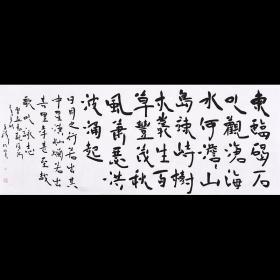 東臨碣石
以觀滄海
水何澹々山
島竦峙樹
木叢生百
草豐茂秋
風蕭瑟洪
波涌起
日月之行若出其
中星漢燦爛若出
其里幸甚至哉
歌以詠志